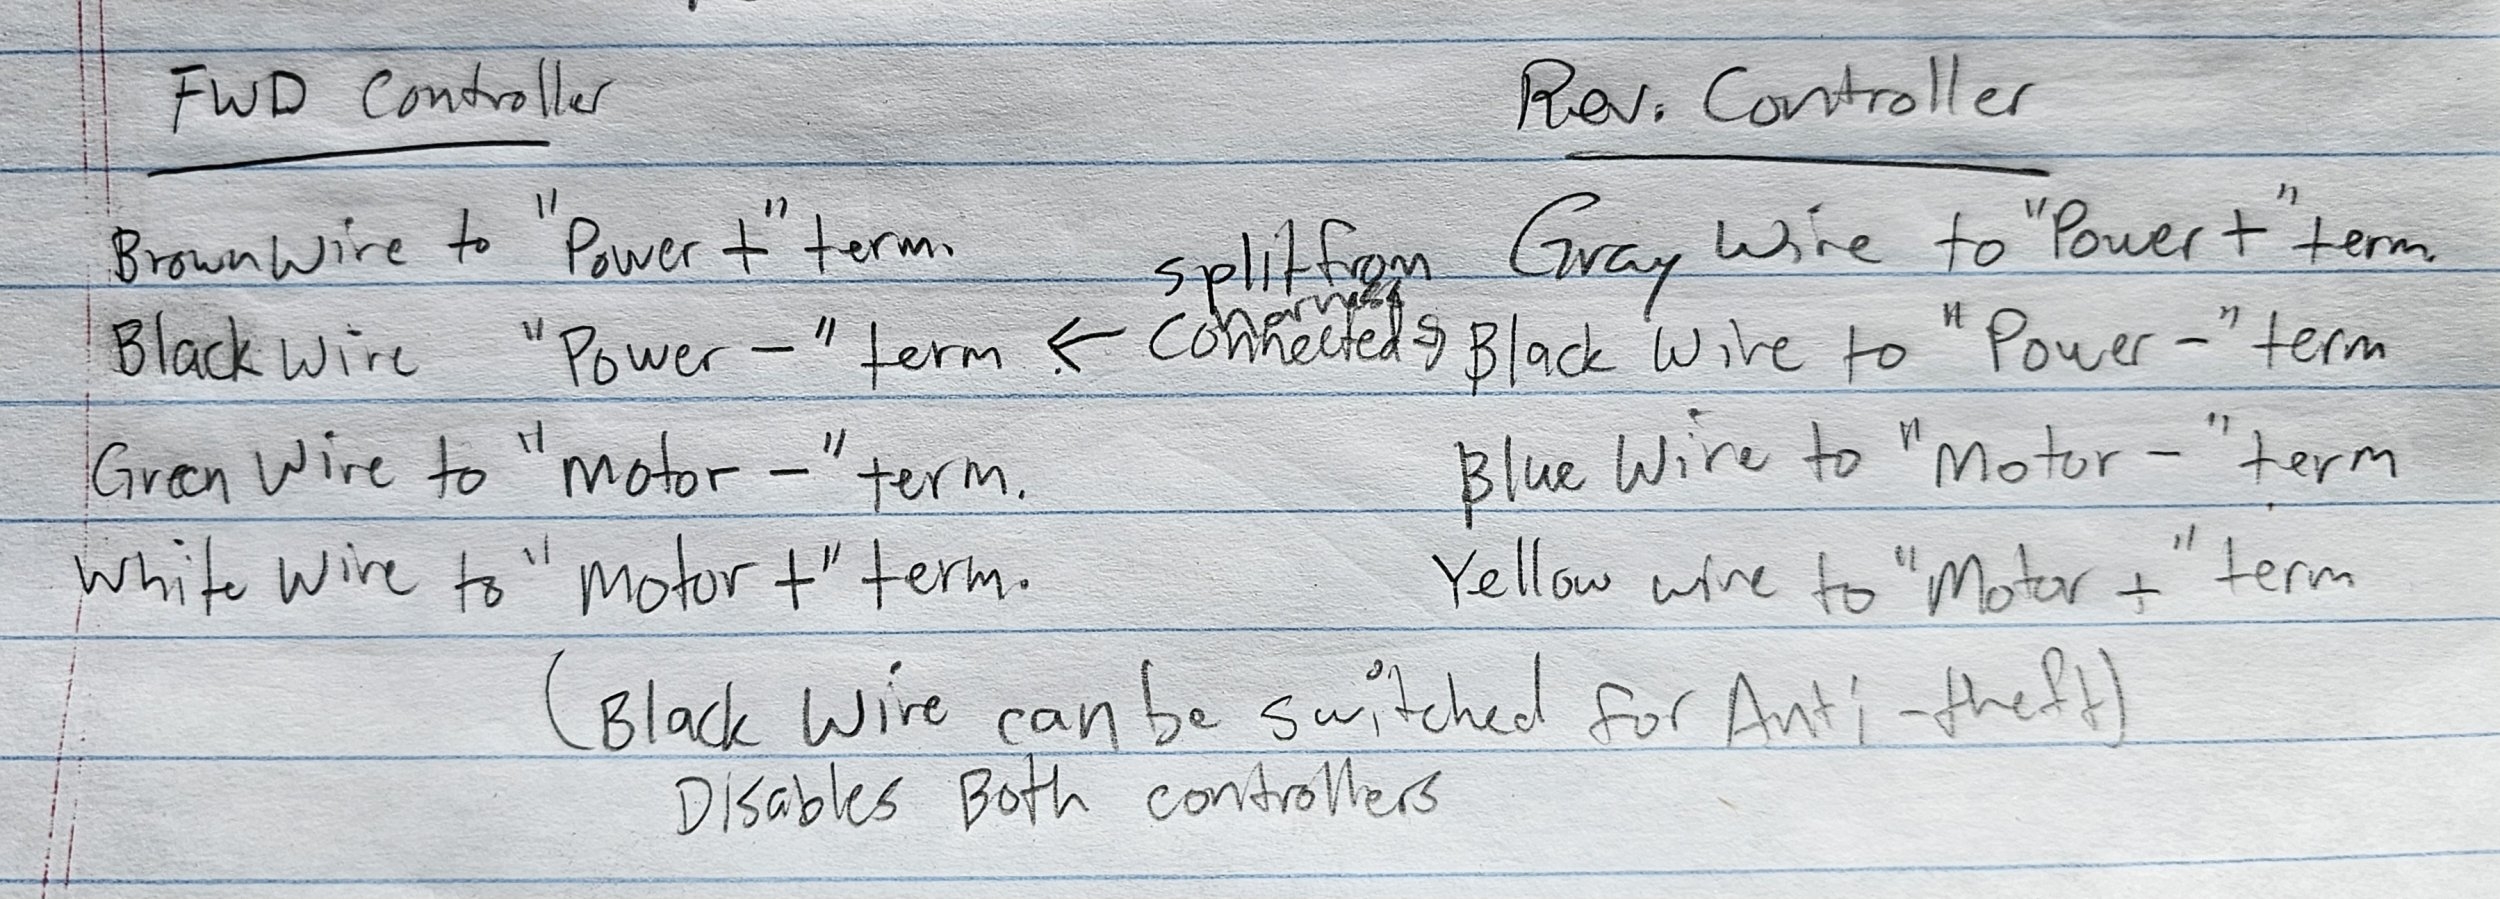 FWD Controller
Rev. Controller
Brown Wire to "Power +" term.
Black Wire "Power -" term
Green Wire to "Motor -" term.
White Wire to "Motor +" term.
split from
← Connected →
Gray Wire to "Power +" term.
Black Wire to "Power -" term
Blue Wire to "Motor -" term
Yellow wire to "Motor +" term
(Black Wire can be switched for Anti-theft)
Disables Both controllers